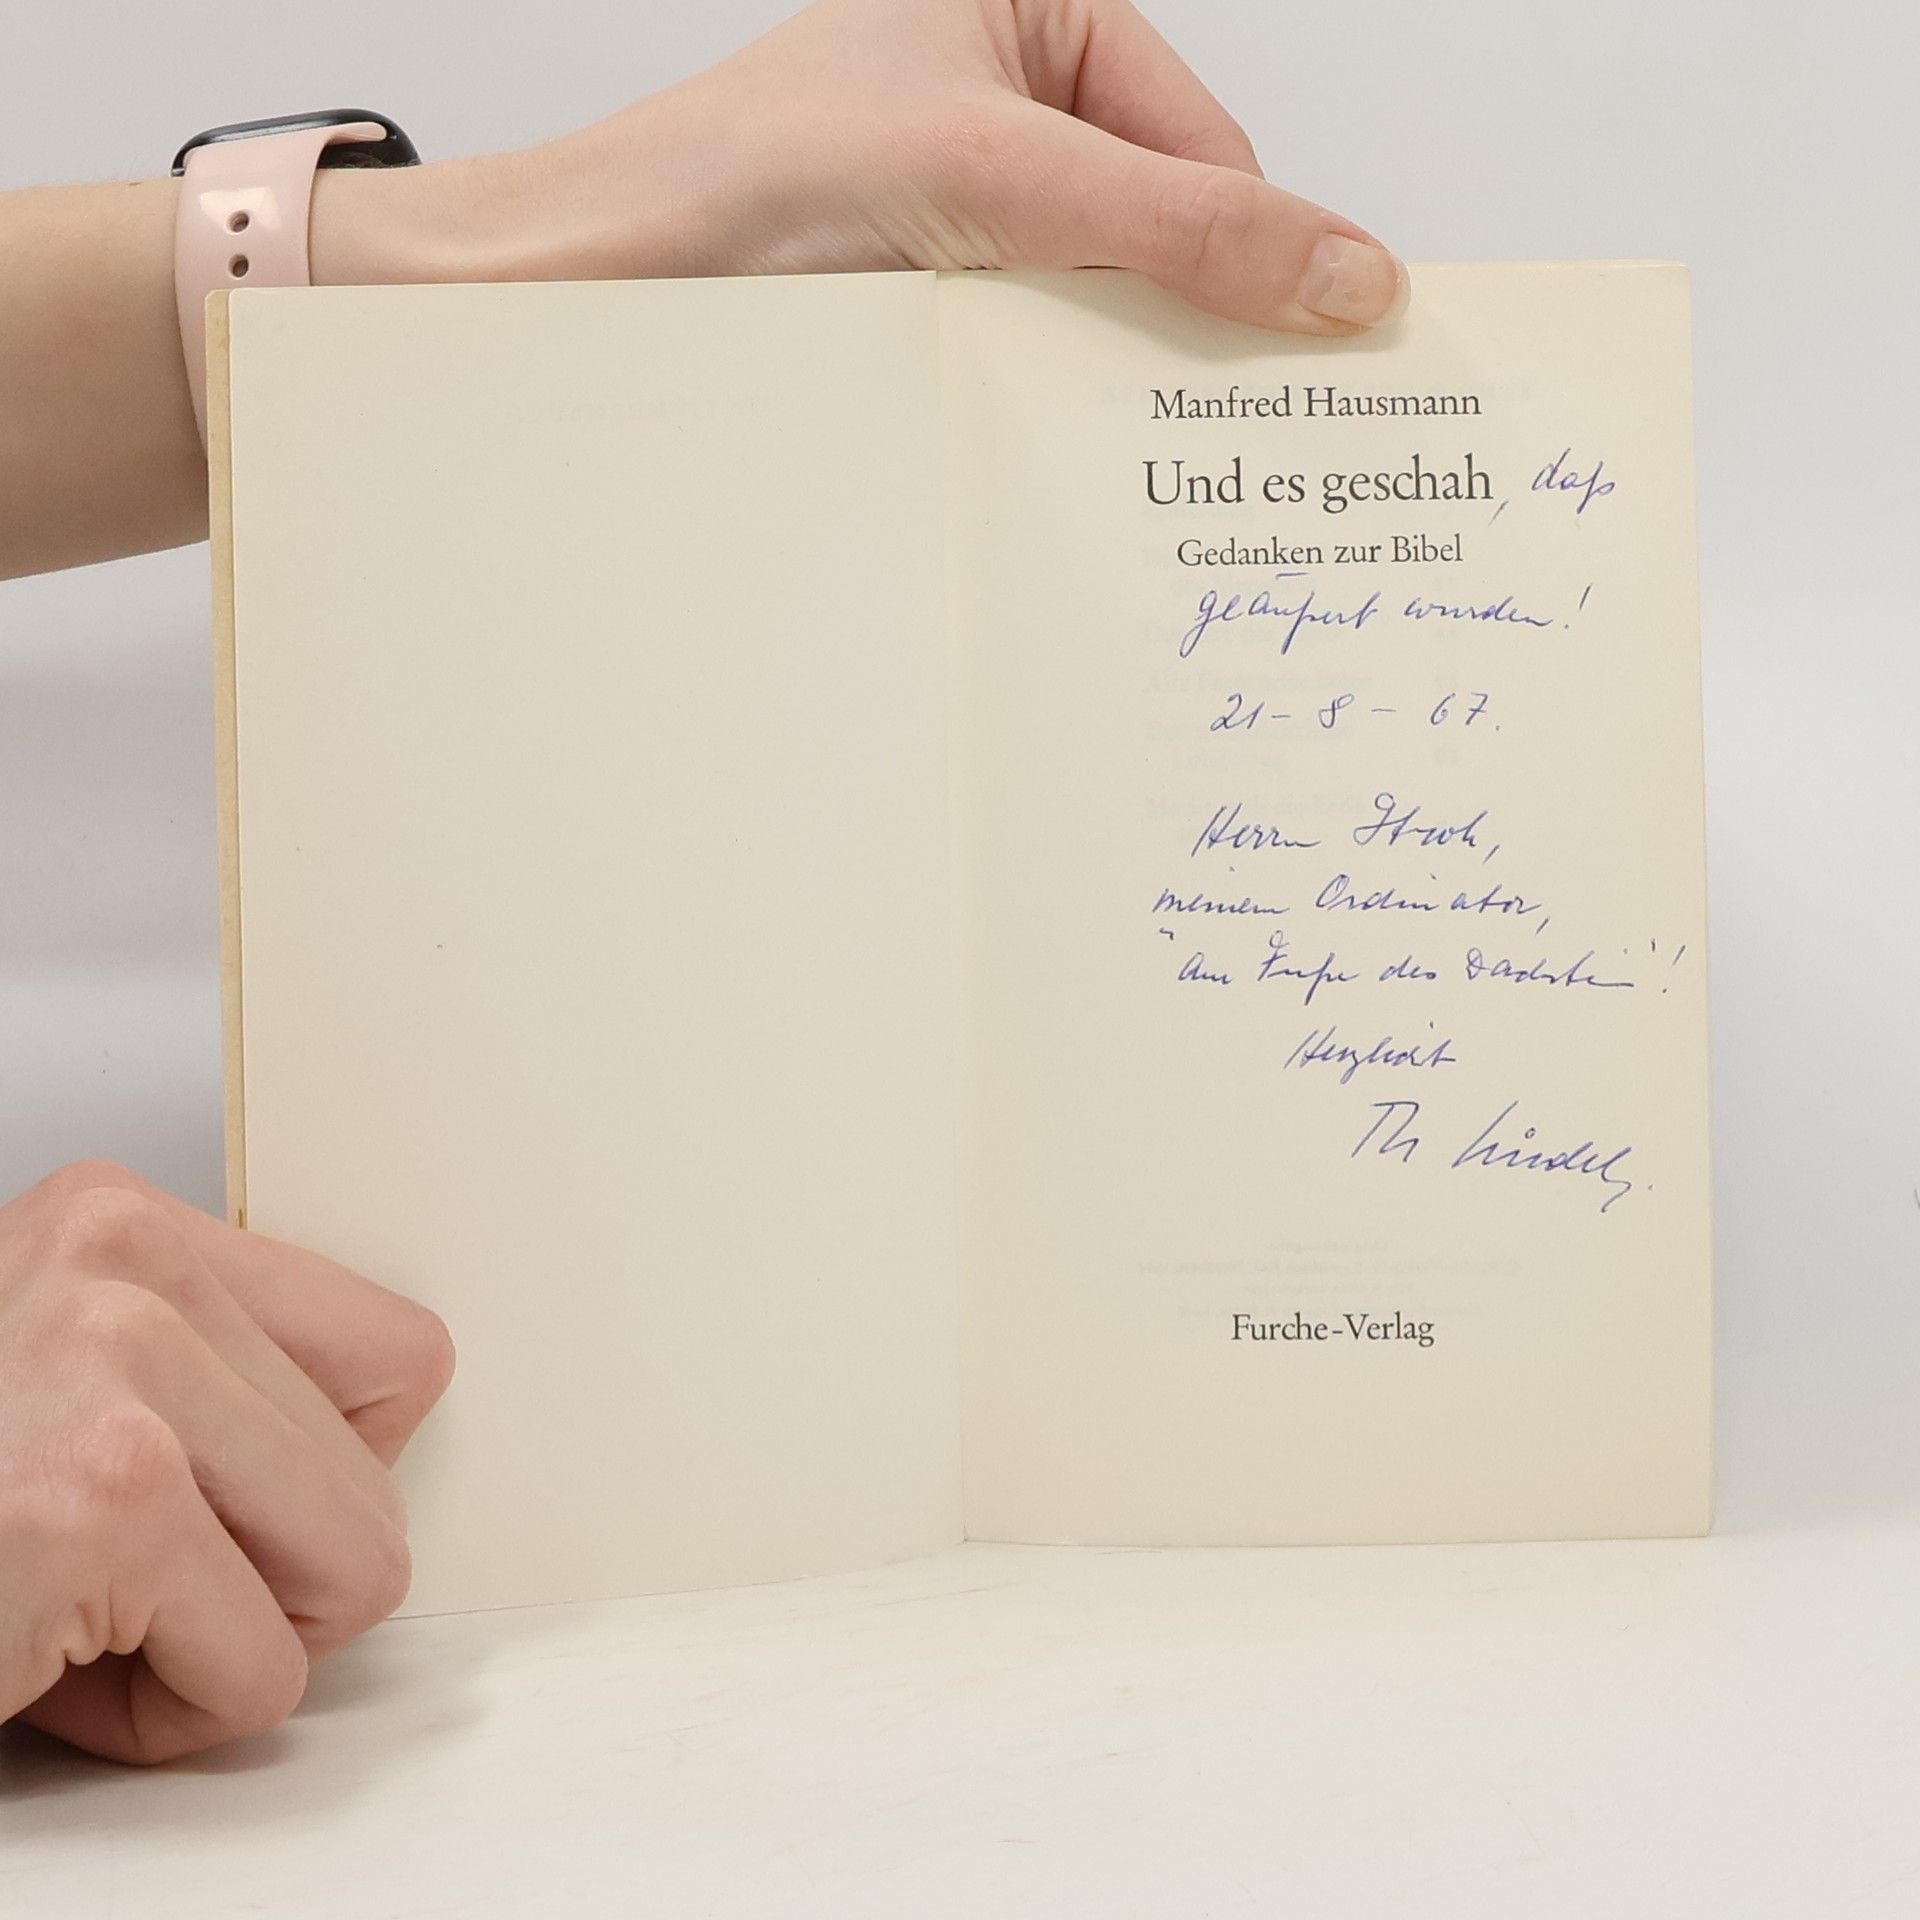 Manfred Hausmann
Und es geschah, daß
Gedanken zur Bibel
geäußert wurden!
21-8-67.
Herrn Stroh,
meinem Ordinator,
"am Fuße des Dachstein"!
Herzlichst
Th
Furche-Verlag